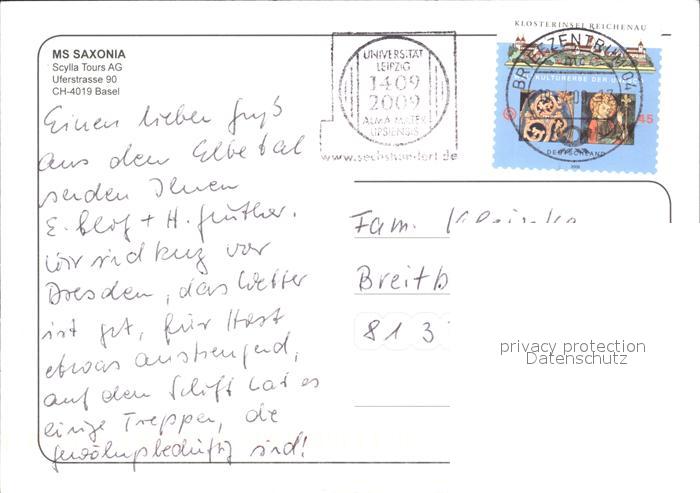 MS SAXONIA
Scylla Tours AG
Uferstrasse 90
CH-4019 Basel
Einen lieben Gruß
aus dem Elbetal
senden Ihnen
E. + H. Günther.
Wir sind kurz vor
Dresden, das Wetter
ist gut, für Horst
etwas anstrengend,
auf dem Schiff hat es
einige Treppen, die
gewöhnungsbedürftig sind!
UNIVERSITÄT
LEIPZIG
1409
2009
ALMA MATER
LIPSIENSIS
www.sechshundert.de
KLOSTERINSEL REICHENAU
BRIEFZENTRUM 04
KULTURERBE DER
45
DEUTSCHLAND
Fam.
Breitb
81 3
privacy protection
Datenschutz